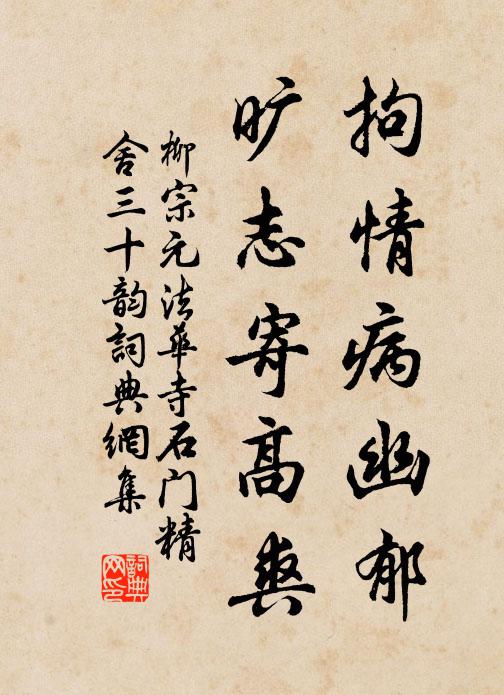 拘情病幽郁
旷志寄高爽
柳宗元法華寺石门精
舍三十韵詞典網集
詞典网印